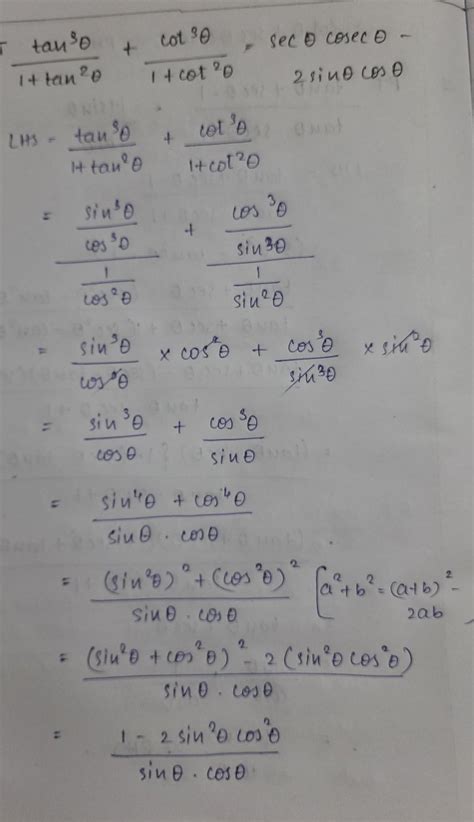 tan³θ/1+tan²θ + cot³θ/1+cot²θ = secθ cosecθ -
2sinθ cosθ
LHS - tan³θ/1+tan²θ + cot³θ/1+cot²θ
= sin³θ/cos³θ / 1/cos²θ + cos³θ/sin³θ / 1/sin²θ
= sin³θ/cos³θ × cos²θ + cos³θ/sin³θ × sin²θ
= sin³θ/cosθ + cos³θ/sinθ
= sin⁴θ + cos⁴θ/sinθ . cosθ
= (sin²θ)² + (cos²θ)²/sinθ . cosθ [a²+b² = (a+b)² -
2ab
= (sin²θ + cos²θ)² - 2(sin²θ cos²θ)/sinθ . cosθ
= 1 - 2sin²θ cos²θ/sinθ . cosθ